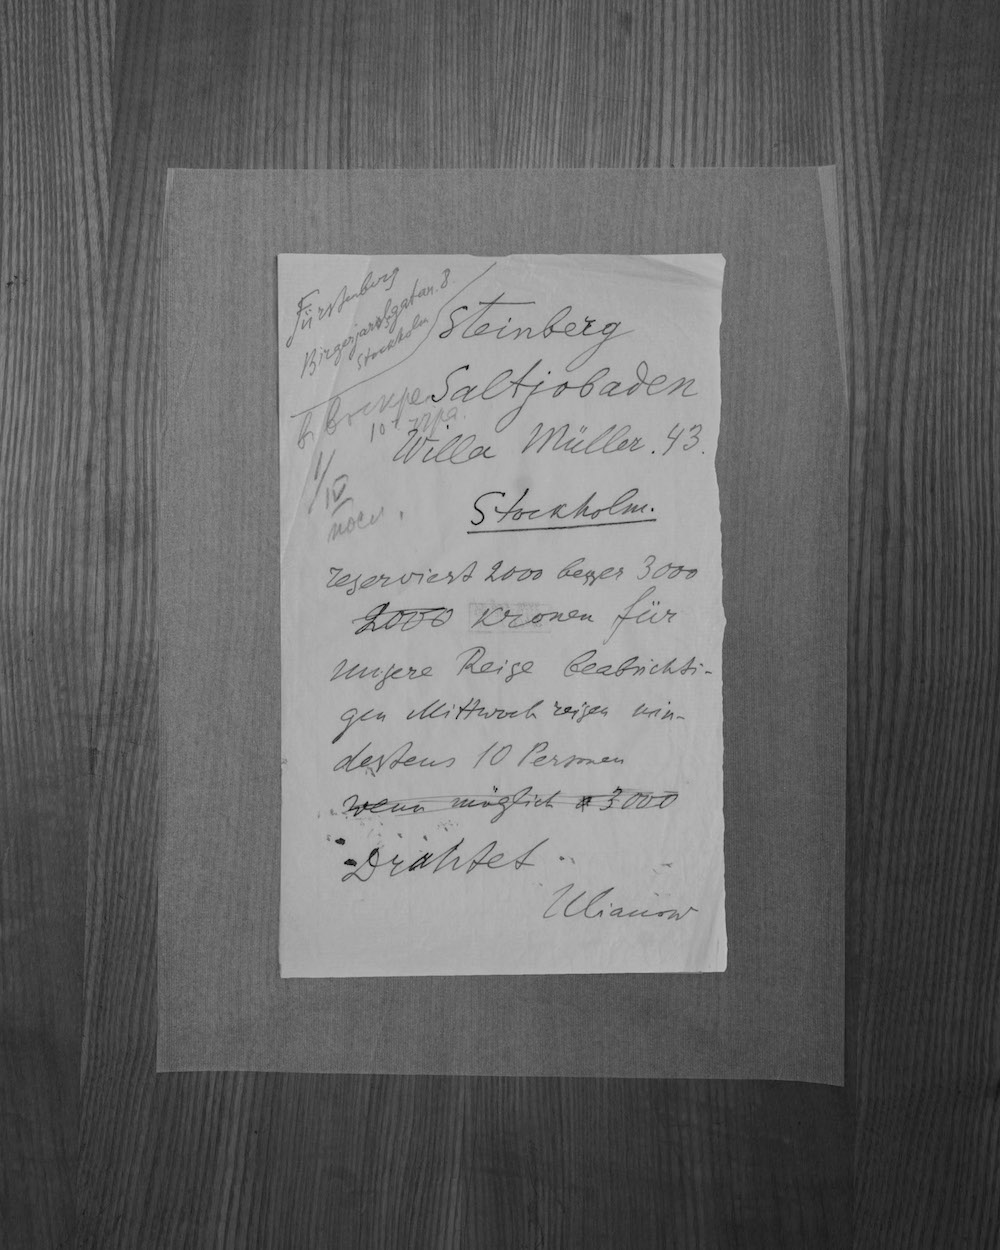 Fürstenberg
Birgerjarlsgatan 8.
Stockholm
Steinberg
Saltjobaden
Willa Müller. 43.
10 ч. утра.
1/IV
Stockholm.
reserviert 2000 besser 3000
2000 Kronen für
unsere Reise beabsichti-
gen Mittwoch reisen min-
destens 10 Personen
wenn möglich 3000
Drahtet
Ulianow